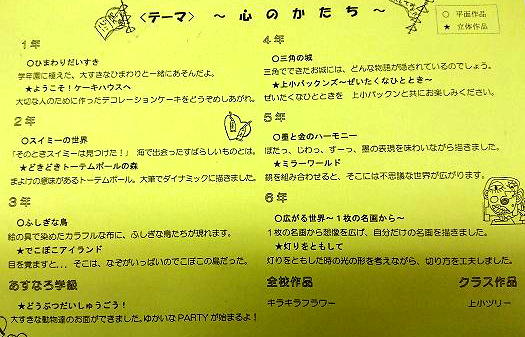 〈テーマ〉 ～ 心のかたち ～
○ 平面作品
★ 立体作品
1年
○ひまわりだいすき
学年園に植えた、大すきなひまわりと一緒にあそんだよ。
★ようこそ!ケーキハウスへ
大切な人のために作ったデコレーションケーキをどうぞめしあがれ。
2年
○スイミーの世界
「そのときスイミーは見つけた!」 海で出会ったすばらしいものとは。
★どきどきトーテムポールの森
まよけの意味があるトーテムポール。大筆でダイナミックに描きました。
3年
○ふしぎな鳥
絵の具で染めたカラフルな布に、ふしぎな鳥たちが現れます。
★でこぼこアイランド
目を覚ますと... そこは、なぞがいっぱいのでこぼこの島だった。
あすなろ学級
★どうぶつだいしゅうごう!
大すきな動物達のお面ができました。ゆかいなPARTYが始まるよ!
4年
○三角の城
三角でできたお城には、どんな物語が隠されているのでしょう。
★上小バックンズ～ぜいたくなひととき～
ぜいたくなひとときを 上小バックンと共にお楽しみください。
5年
○墨と金のハーモニー
ぽたっ、じわっ、すーっ、墨の表現を味わいながら描きました。
★ミラーワールド
鏡を組み合わせると、そこには不思議な世界が広がります。
6年
○広がる世界～1枚の名画から～
1枚の名画から想像を広げ、自分だけの名画を描きました。
★灯りをともして
灯りをともした時の光の形を考えながら、切り方を工夫しました。
全校作品
キラキラフラワー
クラス作品
上小ツリー